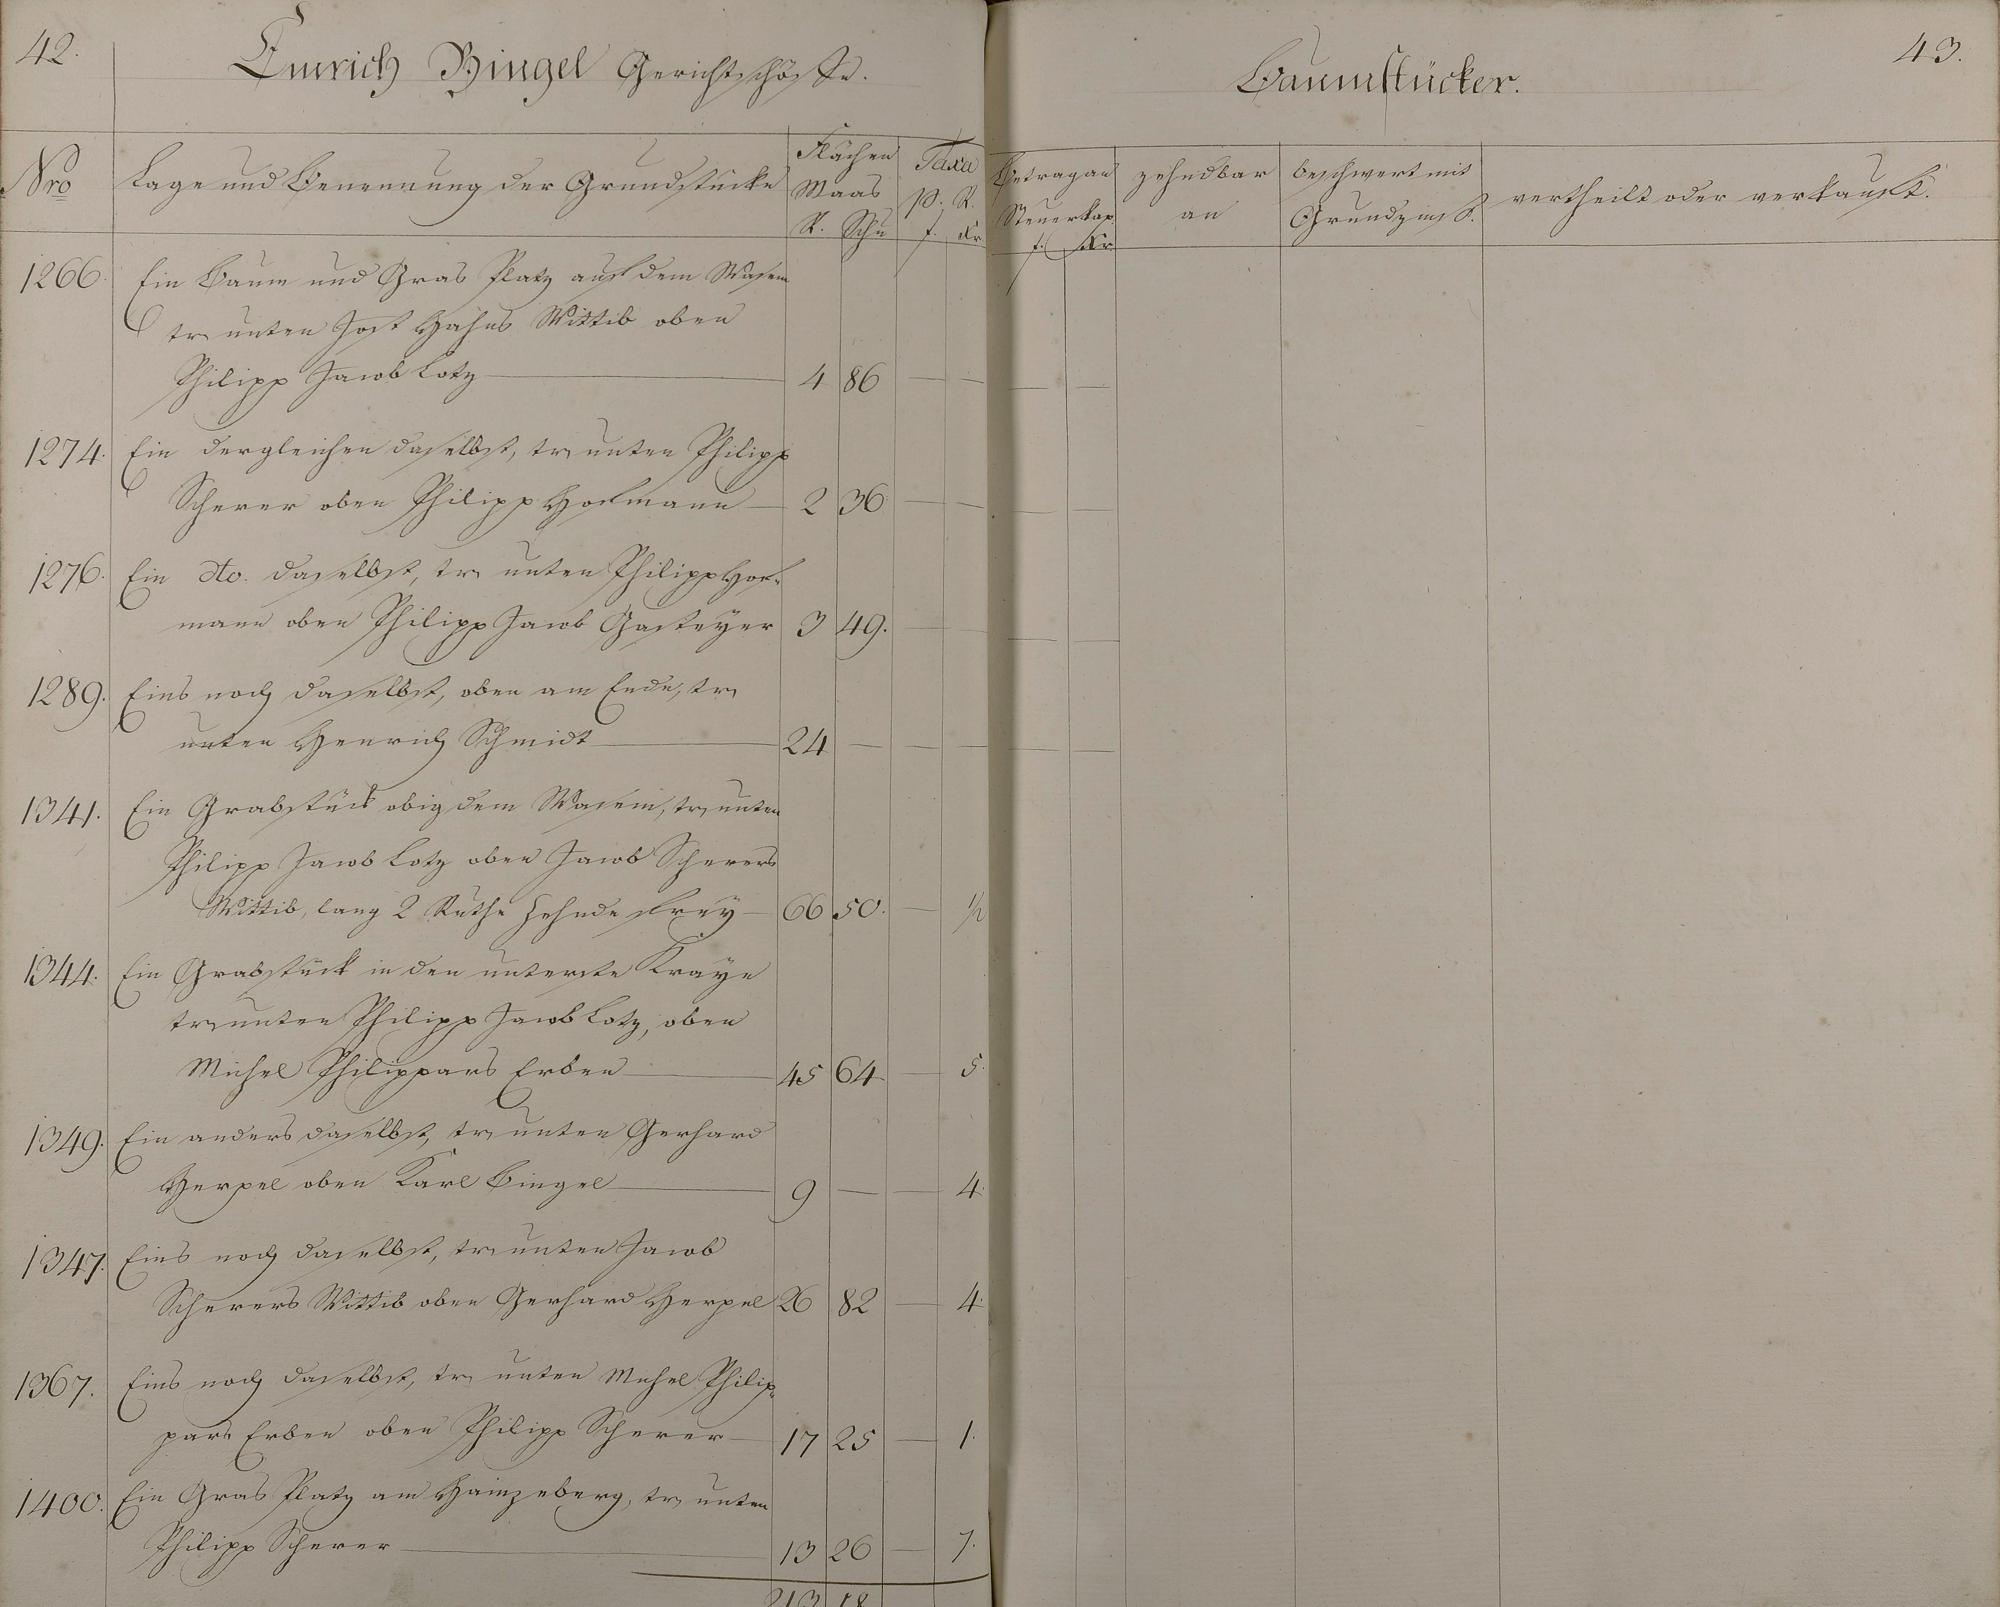 42.
Emrich Bingel Gerichtschöffe.
Nro
Lage und Benennung der Grundstücke
Flächen Maas
R. Schu
Taxa
p. R.
f. Xr
1266. Ein Baum und Gras Platz auf dem Wasem
tr unten Jost Hahns Wittib oben
Philipp Jacob Lotz — 4 86 — —
1274. Ein dergleichen daselbst, tr unten Philipp
Scherer oben Philipp Hofmann — 2 36 — —
1276. Ein dto. daselbst, tr unten Philipp Hof-
mann oben Philipp Jacob Gasteyer 3 49. — —
1289. Eins noch daselbst, oben am Ende, tr
unten Henrich Schmidt — 24 — — —
1341. Ein Grabstück obig dem Wasem, tr unten
Philipp Jacob Lotz oben Jacob Scherers
Wittib, lang 2 Ruthe Zehnde frey — 66 50. — 1/2
1344. Ein Grabstück in den unterste Kraye
tr unten Philipp Jacob Lotz, oben
Michel Philippars Erben — 45 64 — 5.
1349. Ein anders daselbst, tr unten Gerhard
Herpel oben Karl Bingel — 9 — — 4.
1347. Eins noch daselbst, tr unten Jacob
Scherers Wittib oben Gerhard Herpel 26 82 — 4.
1367. Eins noch daselbst, tr unten Michel Philip-
pars Erben oben Philipp Scherer — 17 25 — 1.
1400. Ein Gras Platz am Hainzeberg, tr unten
Philipp Scherer — 13 26 — 7.
213 18
43.
Baumstücker.
Betrag an
Steuerkap
f. Xr
zehndbar
an
beschwert mit
Grundzinß.
vertheilt oder verkauft.